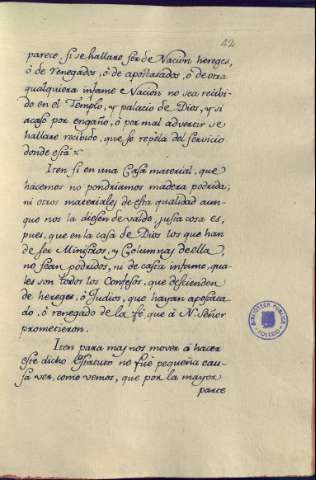 42
parece, si se hallare ser de Nacion hereges,
ó de renegados, ó de apostatados, ó de otra
qualquiera infame Nacion no sea recibi-
do en el Templo, y palacio de Dios, y si
acaso por engaño, ó por mal advertir se
hallare recibido, que se repela del servicio
donde está.
Iten si en una Casa material, que
hacemos no pondriamos madera podrida,
ni otros materiales de esta qualidad aun-
que nos la diesen de valde, justa cosa es,
pues, que en la casa de Dios los que han
de ser Ministros, y Columnas de ella,
no sean podridos, ni de casta infame, qua-
les son todos los Confesos, que descienden
de hereges, ó Judios, que hayan apostata-
do, ó renegado de la fé, que á N. Señor
prometieron.
Iten para mas nos mover á hacer
este dicho Estatuto no fué pequeña cau-
sa ver, como vemos, que por la mayor
parte
BIBLIOTECA PUBLICA
TOLEDO